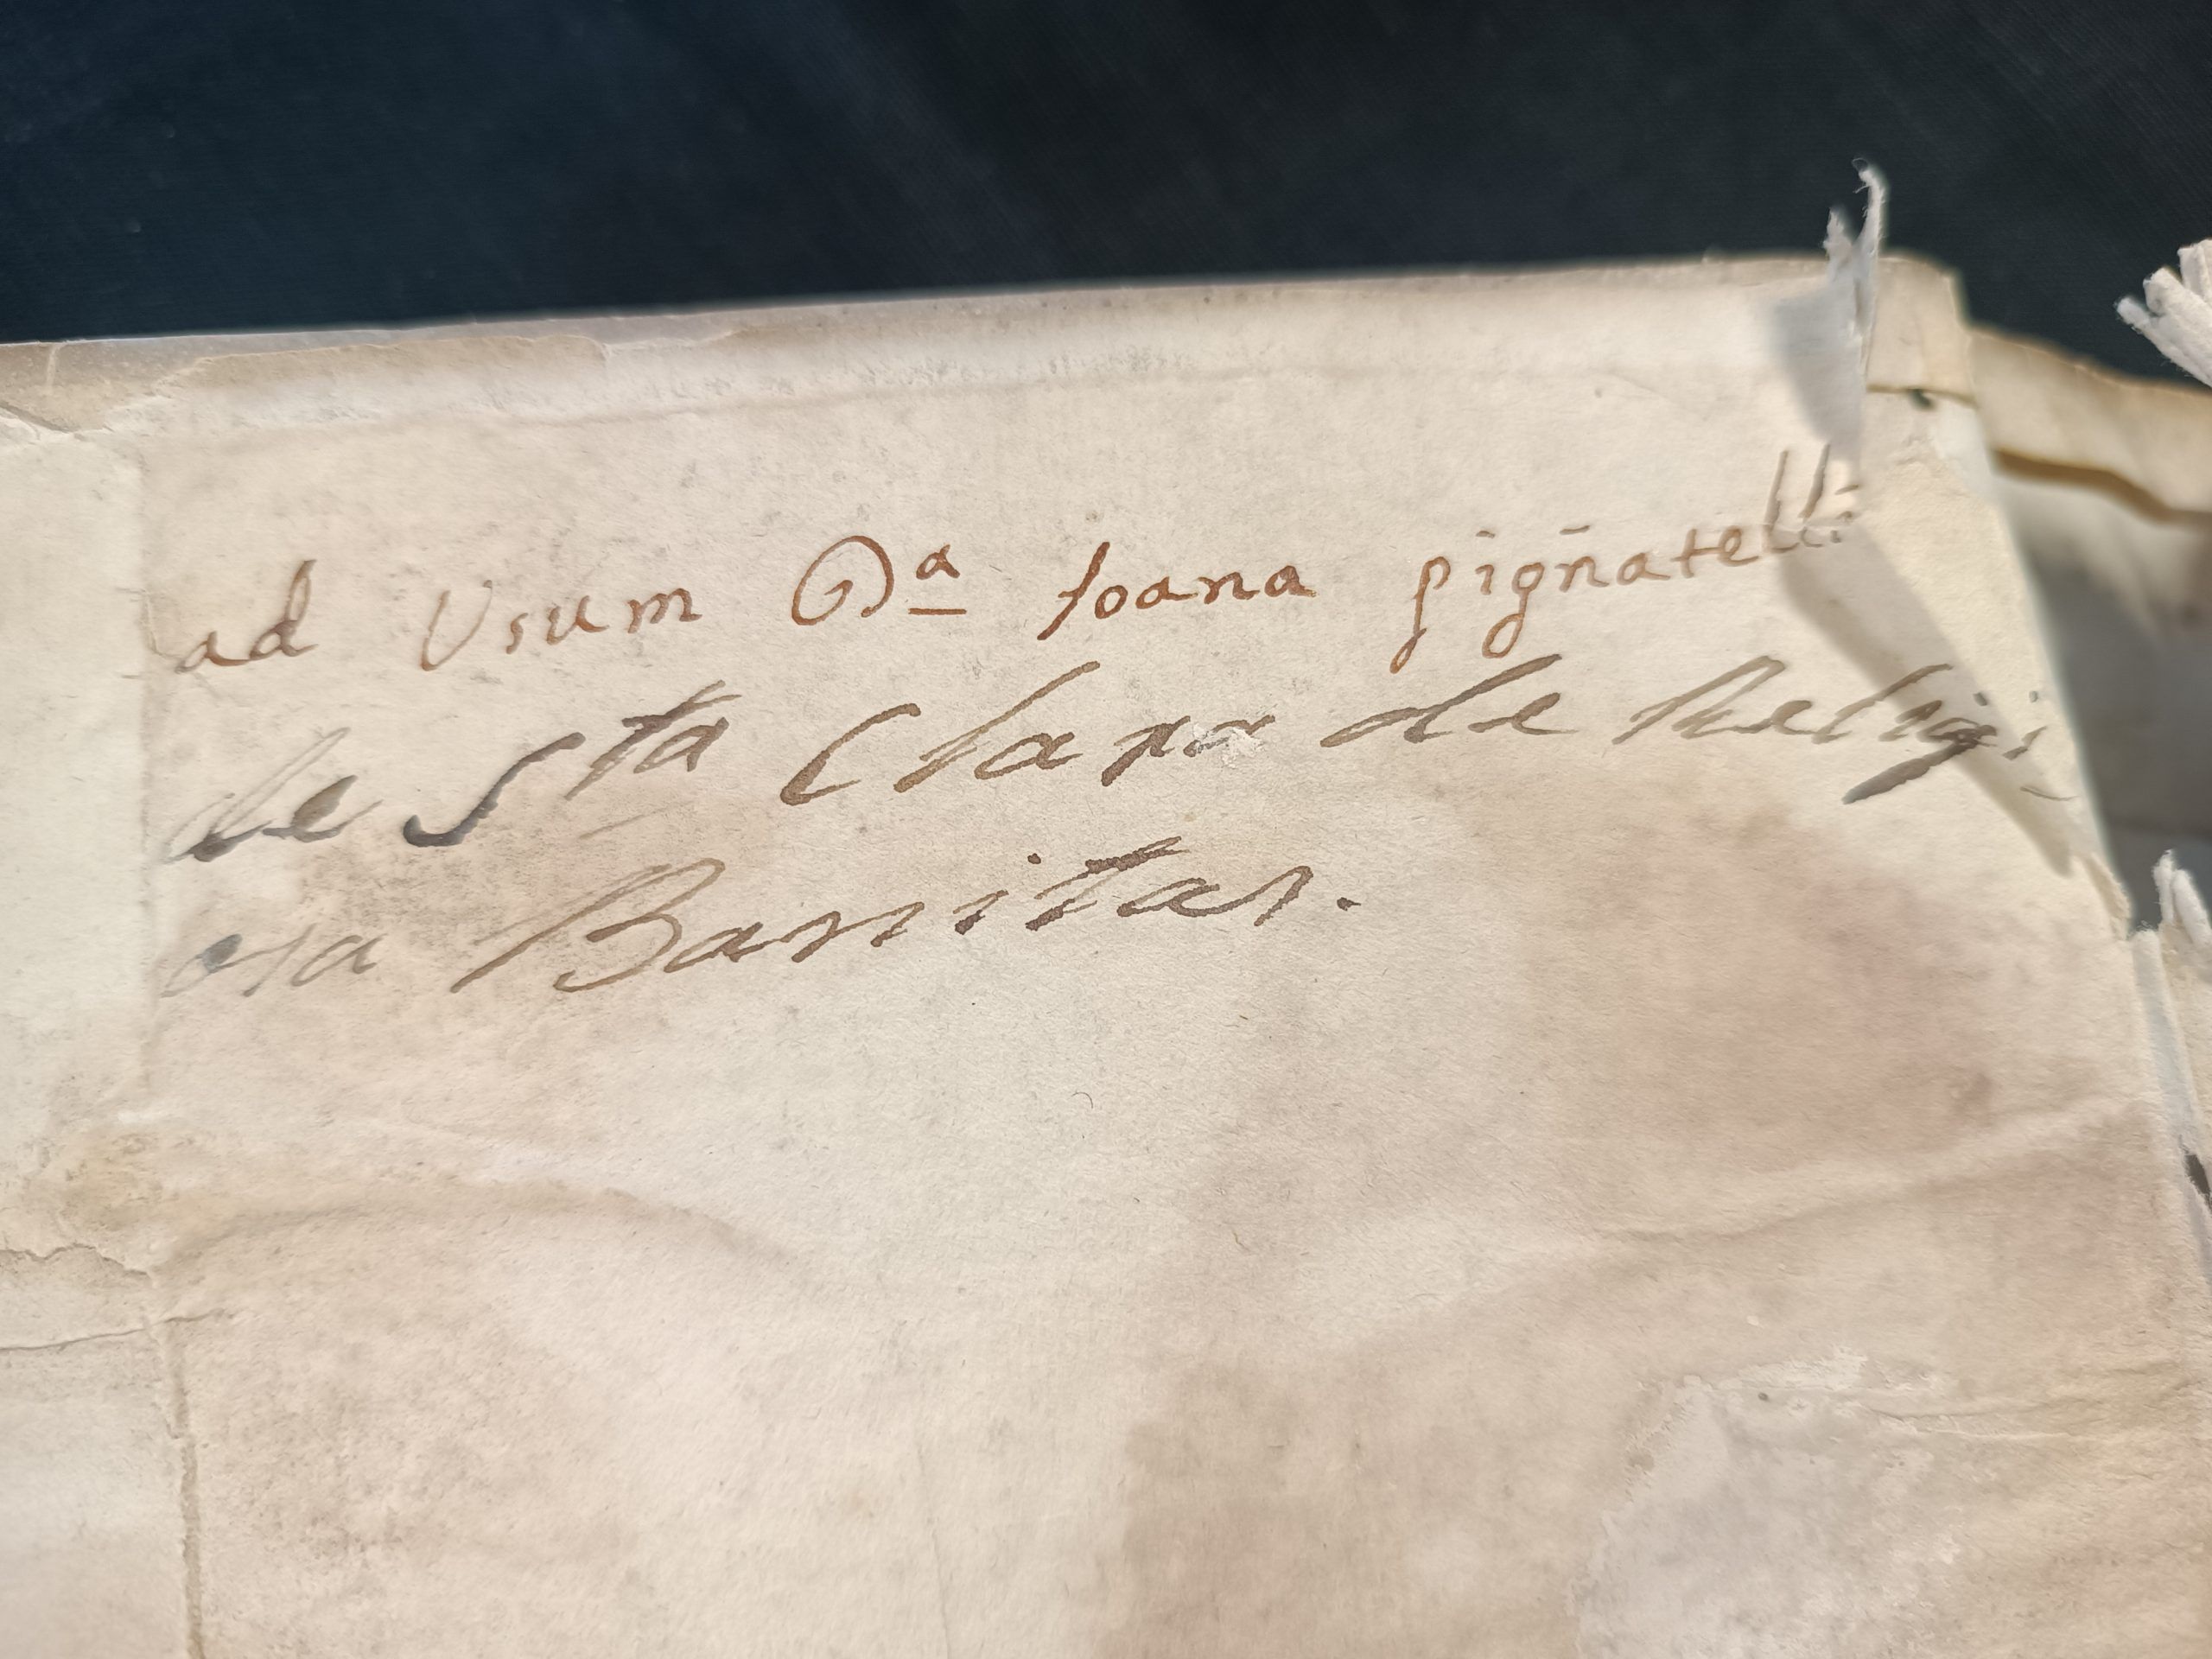 ad Usum Dª Joana pigñatelli
de Sta Clara de Religi
osa Banitas.